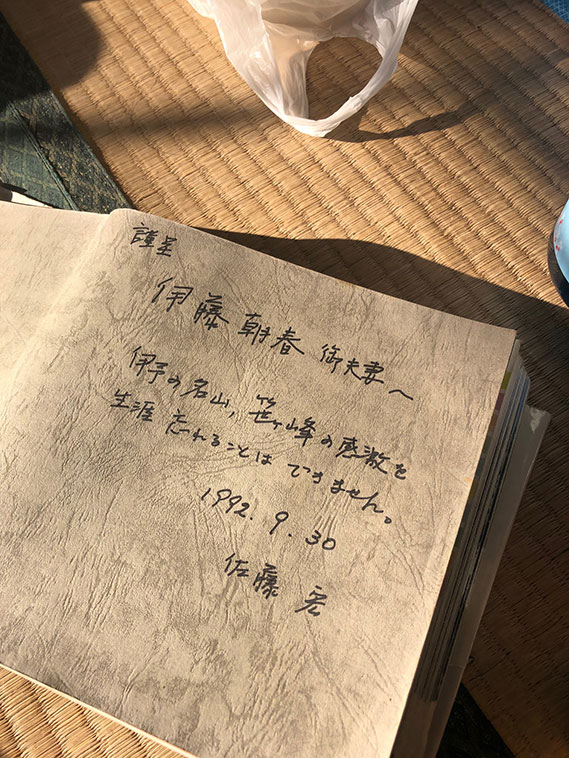 謹呈
伊藤 朝春 御夫妻へ
伊予の名山、笹ヶ峰の感激を
生涯 忘れることは できません。
1992.9.30
佐藤 宏